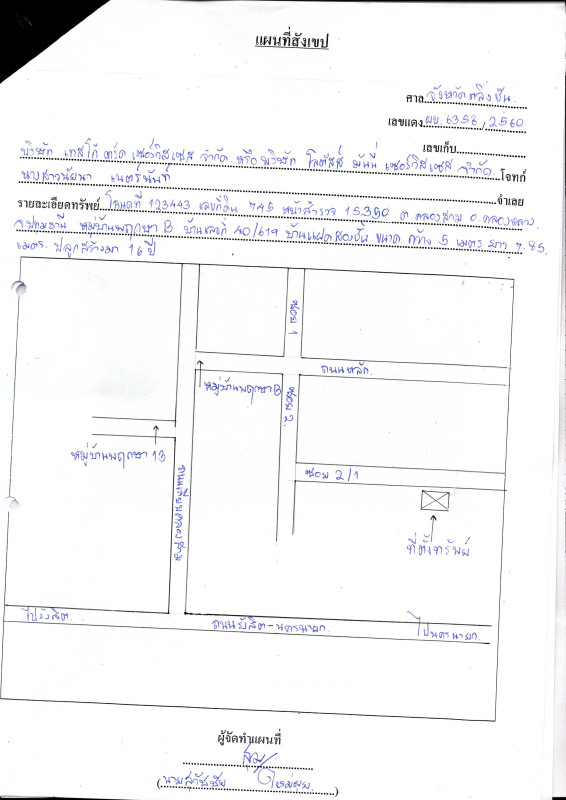 แผนที่สังเขป
ศาล จังหวัดตลิ่งชัน
เลขแดง ผบ. 6358 / 2560
เลขเก็บ
บริษัท เทสโก้ คาร์ด เซอร์วิสเซส จำกัด หรือ บริษัท โลตัสส์ มันนี่ เซอร์วิสเซส จำกัด โจทก์
นางสาวนัยนา เนตร์นันท์ จำเลย
รายละเอียดทรัพย์ โฉนดที่ 123443 เลขที่ดิน 745 หน้าสำรวจ 15350 ต.คลองสาม อ.คลองหลวง
จ.ปทุมธานี หมู่บ้านพฤกษา B บ้านเลขที่ 40/619 บ้านแฝดสองชั้น ขนาด กว้าง 5 เมตร ยาว 7.85
เมตร ปลูกสร้างมา 16 ปี
ซอย 1
ถนนหลัก
หมู่บ้านพฤกษา B
ซอย 2
หมู่บ้านพฤกษา 13
ซอย 2/1
ถนนเลียบคลองสาม
ที่ตั้งทรัพย์
ไปรังสิต
ถนนรังสิต-นครนายก
ไปนครนายก
ผู้จัดทำแผนที่